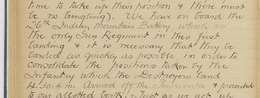 time to take up their position & there must
be no bungling). We have on board the
26th Indian Mountain Battery which
the only Inf Regiment in this first
landing & it is necessary that they be
landed as quickly as possible in order to
consolidate the positions taken by the
Infantry which the Destroyers land
& proceeded
to our allotted berth. Just as we got